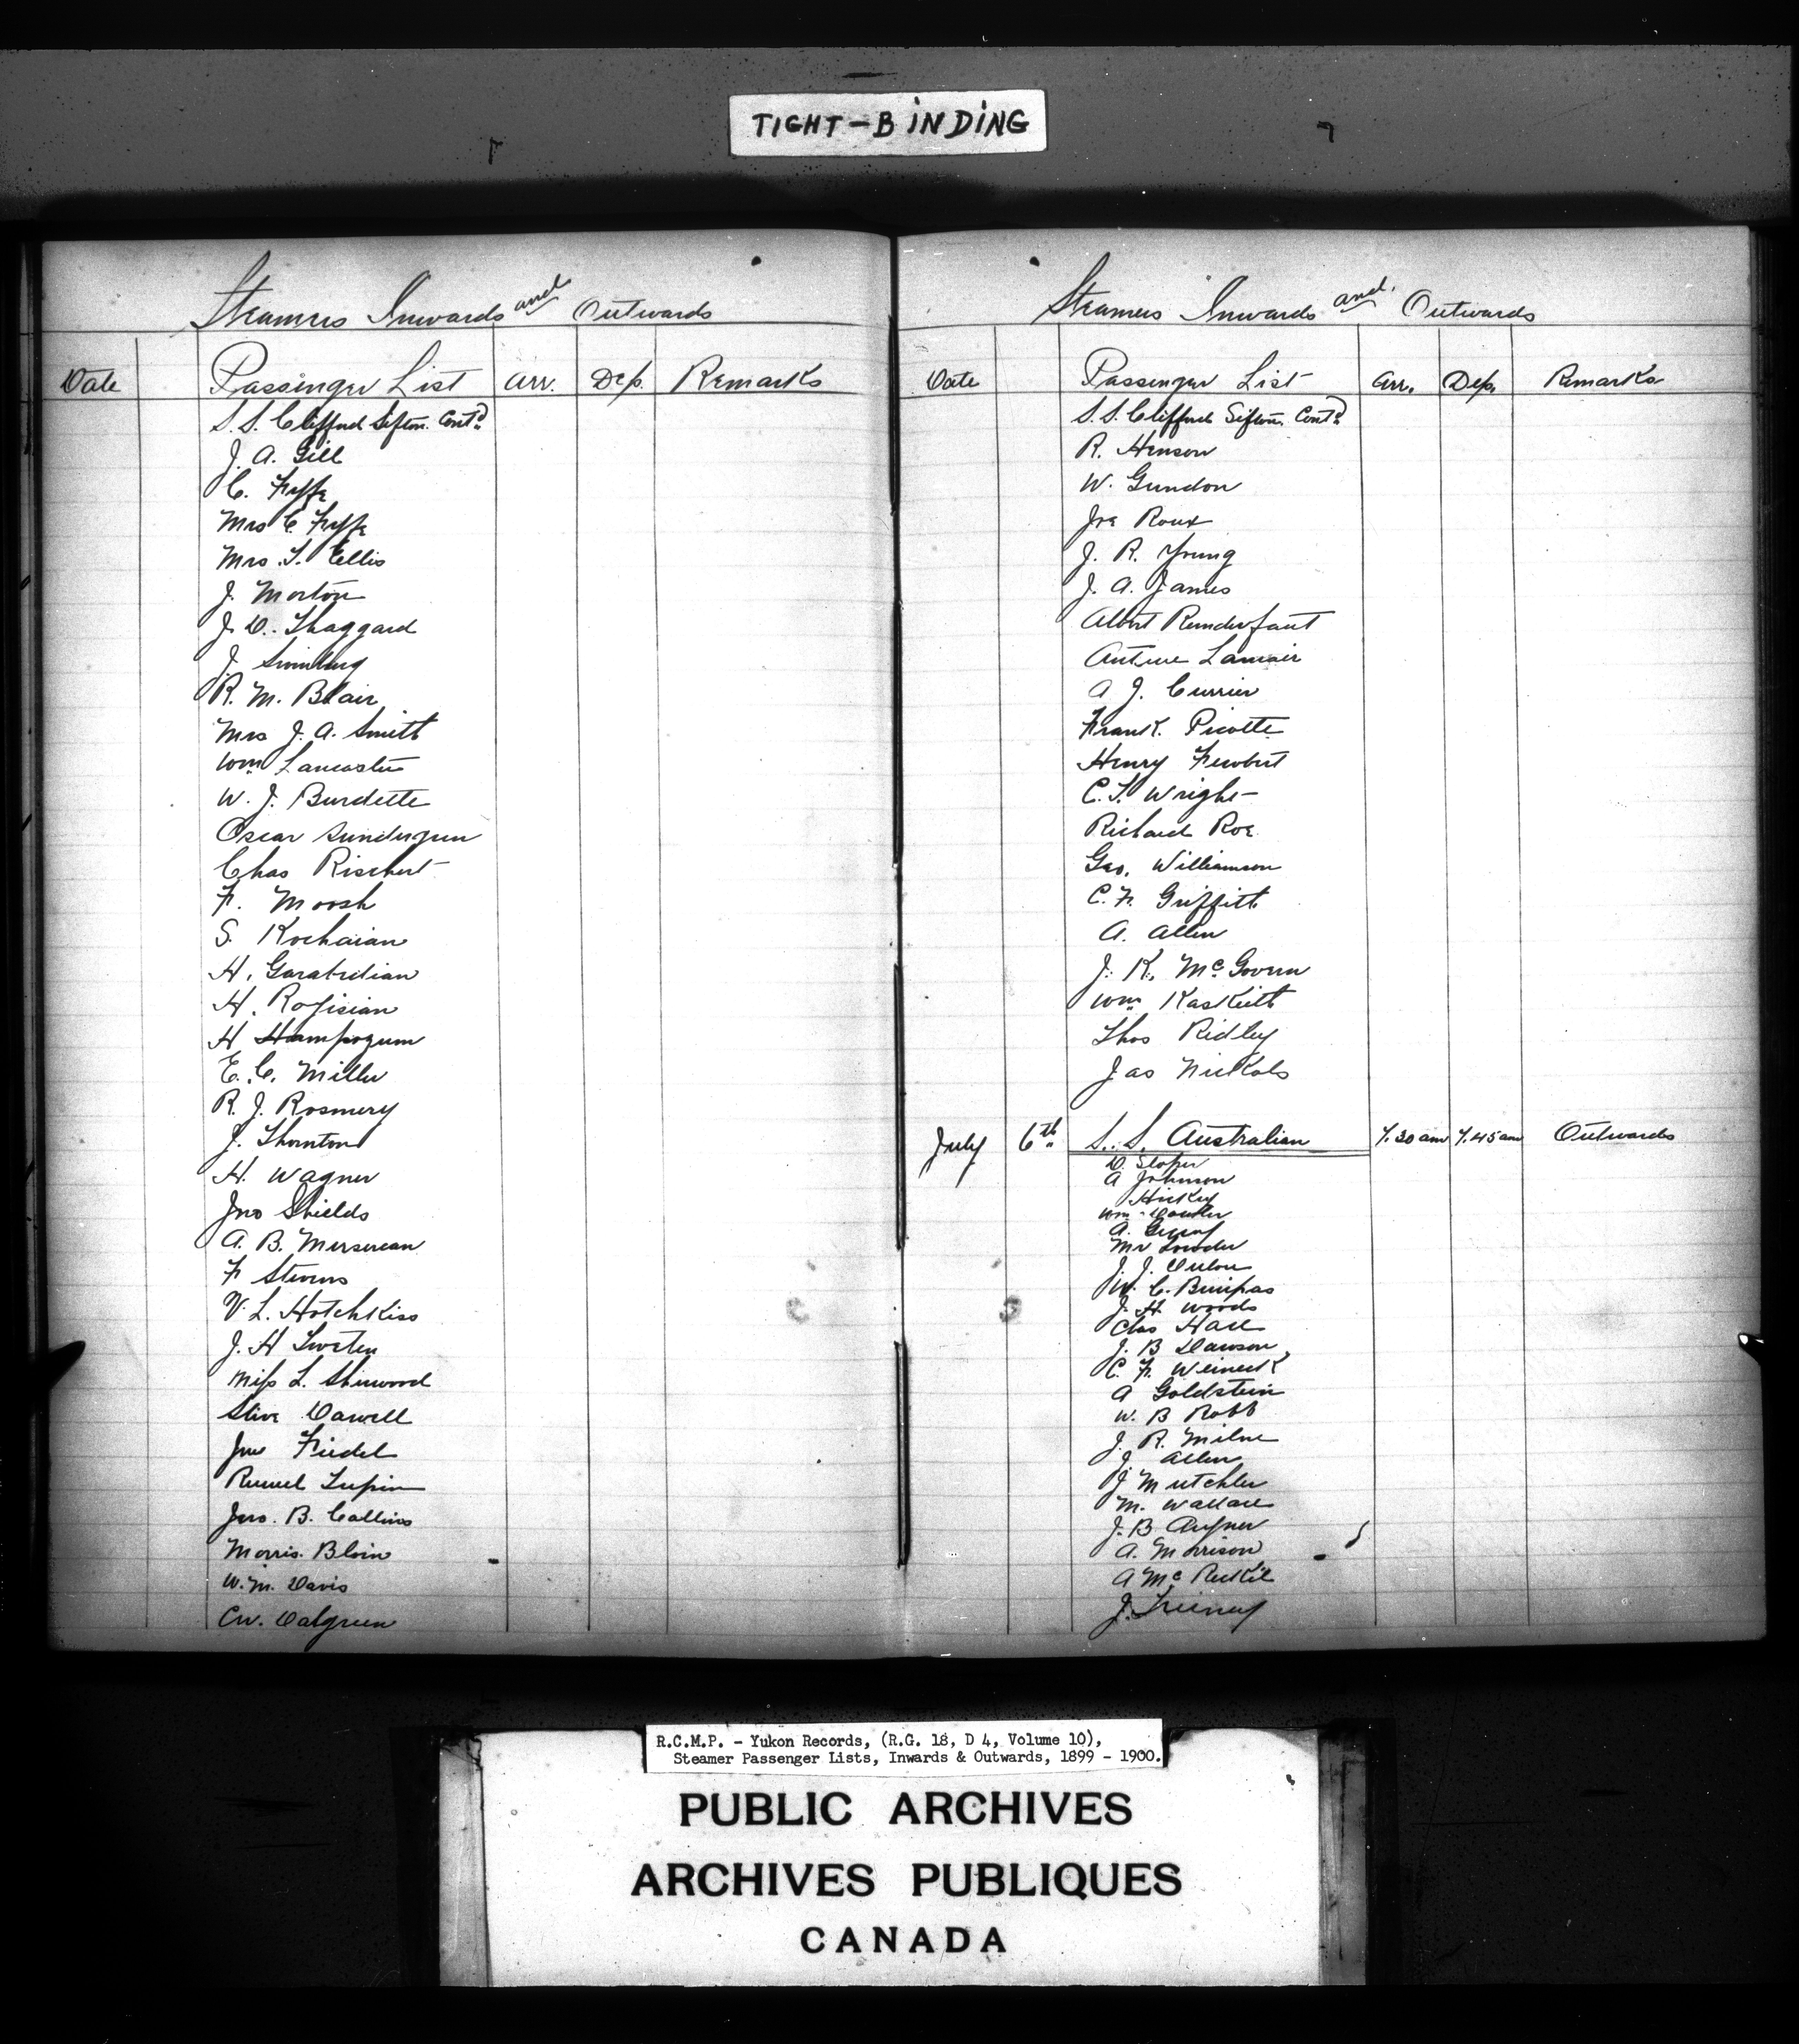 TIGHT-BINDING
Steamers Inwards and Outwards
Date Passenger List Arr. Dep. Remarks
S.S. Clifford Sifton. Contd
J. A. Gill
C. Fyffe
Mrs C Fyffe
Mrs. T. Ellis
J. Morton
J. D. Thaggard
J.
R. M. Blair
Mrs J. A. Smith
Wm Lancaster
W. J. Burdette
Oscar Sundergren
Chas Rischert
F. Moosh
S. Kochaian
H. Garabedian
H. Rofisian
H Hampozum
E. C. Miller
R. J. Rosmery
J. Thornton
H. Wagner
Jno Shields
A. B. Mersereau
F Stevens
V. L. Hotchkiss
J. H
Miss L. Sherwood
Steve Dowell
Jno Friedel
Turpin
Jno. B. Collins
Morris. Bloin
W. M. Davis
CW. Dalgreen
Steamers Inwards and Outwards
Date Passenger List Arr. Dep. Remarks
S. S. Clifford Sifton. Contd
R. Henson
W. Gundon
Joe Roux
J. R. Young
J. A. James
Albert
Lamair
A J. Currier
Frank. Picotte
Henry
C. T. Wright
Richard Roe
Geo. Williamson
C. F. Griffith
A. Allen
J. K. McGovern
Wm Kaskeith
Thos Ridley
Jas Nickols
July 6th S. S. Australian 7.30 am 7.45 am Outwards
D. Sloper
A Johnson
Hickey
Wm
A.
Mr Lowder
J. J.
W. C. Bumpas
J. H. Woods
Chas Hall
J. B Dawson
C. F. Weineck
A Goldstein
W. B Robb
J. R. Milne
J Allen
J Mutchler
M. Wallace
J. B
A. Morrison
A Mc
J.
R.C.M.P. - Yukon Records, (R.G. 18, D 4, Volume 10),
Steamer Passenger Lists, Inwards & Outwards, 1899 - 1900.
PUBLIC ARCHIVES
ARCHIVES PUBLIQUES
CANADA